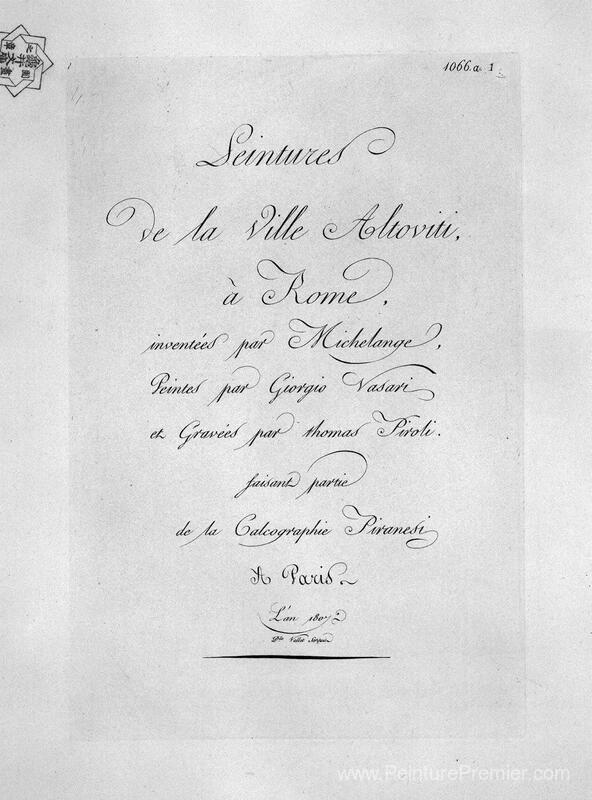 1066.a 1
Peintures
de la Ville Altoviti,
à Rome,
inventées par Michelange,
Peintes par Giorgio Vasari
et Gravées par thomas Piroli.
faisant partie
de la Calcographie Piranesi
A Paris.
L'an 1807
www.PeinturePremier.com